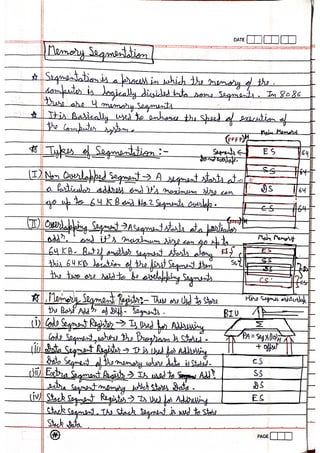 DATE
Memory Segmentation
☆ Segmentation is a process in which the memory of the
computer is logically divided into some segments. In 8086
there are 4 memory segments
☆ It is Basically used to enhance the speed of execution of
the Computer system.
Main Memory
Types of Segmentation :-
Segments
do not overlap.
ES
64
SS
64
DS
64
CS
64
(I) Non Overlapped Segment → A segment starts at
a particular address and it's maximum size can
go up to 64 KB and No 2 Segments overlap.
(II) Overlapping Segment → A segment starts at particular
add. and it's maximum size can go up to
64 KB. But if another segment starts along
this 64 KB location of the first segment then
the two are said to be overlapping Segments
Main Memory
ES
SS
DS
CS
Here Segments overlap
☆ Memory Segment Register:- They are used to store
the Base Add of diff. Segments.
(i) Code Segment Register → Is used for Addressing
Code Segment, where the Program is Stored.
(ii) Data Segment Register → It is used for Addressing
Data Segment of the memory where data is stored.
(iii) Extra Segment Register → Is used to Add
extra segment memory which stores Data.
(iv) Stack Segment Register → Is used for Addressing
Stack Segment. The Stack Segment is used to store
Stack Data
BIU
Σ
+ offset
CS
SS
DS
ES
PAGE